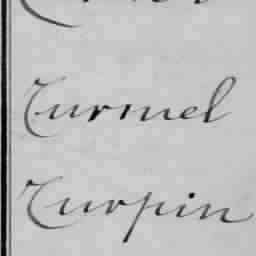 Turmel
Turpin